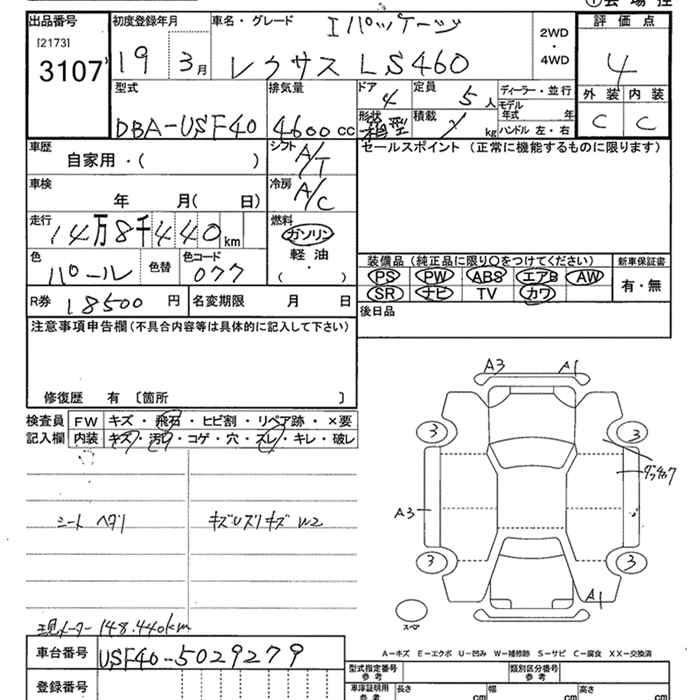 出品番号 初度登録年月 車名・グレード Iパッケージ 2WD・4WD 評価点
[2173] 3107 19 3月 レクサス LS460 4
型式 排気量 ドア 4 定員 5人 ディーラー・並行 外装 内装
DBA-USF40 4600cc 形状 箱型 積載 kg モデル年式 年 ハンドル 左・右 C C
車歴 自家用・( ) シフト A/T セールスポイント(正常に機能するものに限ります)
車検 年 月( 日) 冷房 A/C
走行 14万8千440km 燃料 ガソリン 軽油 ・ ( )
色 パール 色替 色コード 077 装備品(純正品に限り○をつけてください) 新車保証書
PS PW ABS エアB AW 有・無
R券 18500円 名変期限 月 日 SR ナビ TV カワ
注意事項申告欄(不具合内容等は具体的に記入して下さい) 後日品
修復歴 有 〔箇所 〕
検査員記入欄 FW キズ・飛石・ヒビ割・リペア跡・×要
内装 キズ・汚レ・コゲ・穴・スレ・キレ・破レ
A3 A1
3 3
シート ヘタリ
A3
3 3
A1
スペア
現メーター 148.440km
A-キズ E-エクボ U-凹み W-補修跡 S-サビ C-腐食 XX-交換済
車台番号 USF40-5029279
型式指定番号 参考 類別区分番号 参考
登録番号 車庫証明用 参考 長さ cm 幅 cm 高さ cm